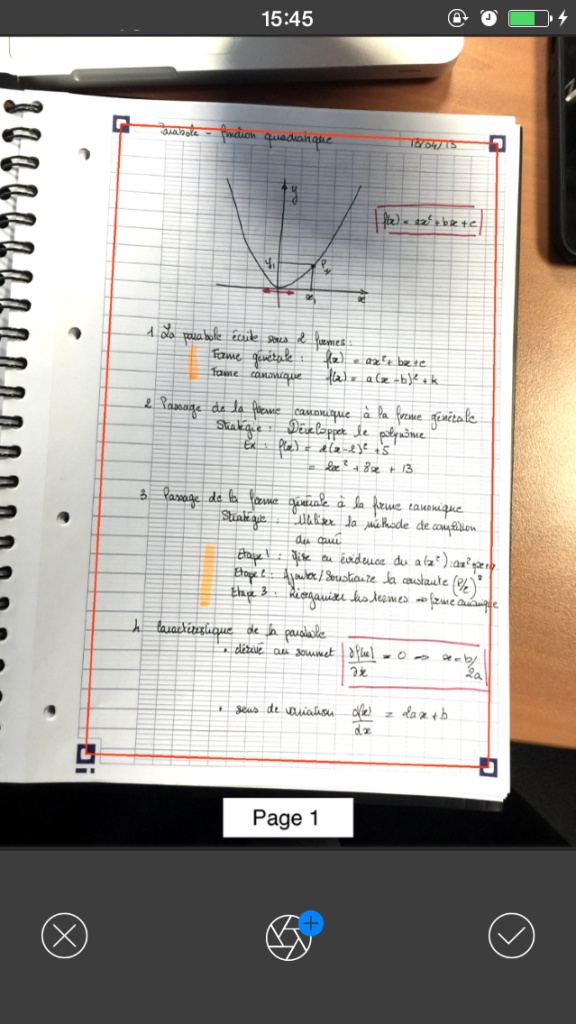 15:45
Parabole - fonction quadratique 18/04/13
y
f(x) = ax² + bx + c
y₁ P
x₁ x
1. La parabole écrite sous 2 formes:
Forme générale : f(x) = ax² + bx + c
Forme canonique f(x) = a(x-b)² + k
2. Passage de la forme canonique à la forme générale
Stratégie : Développer le polynôme
Ex : f(x) = 2(x-2)² + 5
= 2x² + 8x + 13
3. Passage de la forme générale à la forme canonique
Stratégie : Utiliser la méthode de complétion
du carré
Etape 1 : Mise en évidence du a(x²) : ax²
Etape 2 : Ajouter/Soustraire la constante (P/2)²
Etape 3 : Réorganiser les termes ⇒ forme canonique
4. Caractéristique de la parabole
• dérivé au sommet ∂f(x)/∂x = 0 ⇒ x = b/2a
• sens de variation d(x)/dx = 2ax + b
Page 1